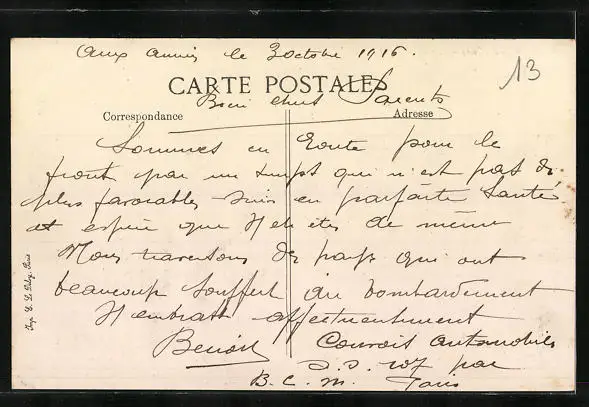 Aux armées le 3 octobre 1916.
13
CARTE POSTALE
Bien chers Parents
Correspondance
Adresse
Sommes en Route pour le
front par un temps qui n'est pas des
plus favorables suis en parfaite santé
et espère que V etes de même
Nous traversons des pays qui ont
beaucoup souffert du bombardement
V embrasse affectueusement
Benoit
Convois automobiles
par
B. C. M. Paris